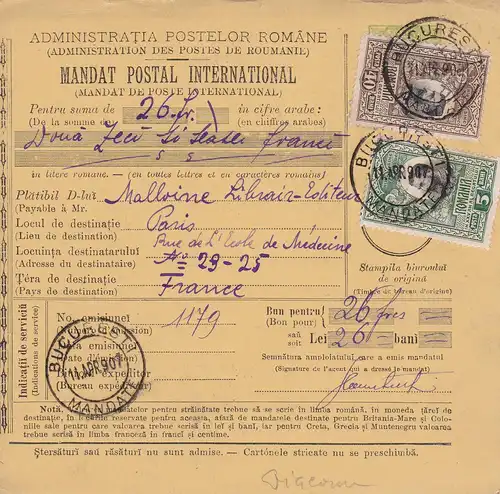 ADMINISTRAȚIA POSTELOR ROMÂNE
(ADMINISTRATION DES POSTES DE ROUMANIE)
MANDAT POSTAL INTERNATIONAL
(MANDAT DE POSTE INTERNATIONAL)
Pentru suma de 26 fr. in cifre arabe:
(De la somme de (en chiffres arabes)
Două Zeci și șease franci
in litere romane. — (en toutes lettres et en caractères romains)
Platibil D-lui Malloine Librair-Editeur
(Payable à Mr.
Locul de destinație Paris
(Lieu de destination) Rue de l'Ecole de Médecine
Locuința destinatarului No 23-25
(Adresse du destinataire)
Țéra de destinație France
(Pays de destination)
Stampila biuroului
de origină
(Timbre du bureau d'origine)
Indicații de serviciŭ
(Indications de service)
No. emisiunei 1179
Bun pentru 26 frcs
(Bon pour)
saŭ
soit
Lei 26 bani
Biuroul expeditor
(Bureau expéditeur)
Semnătura amploiatului care a emis mandatul
(Signature de l'agent qui a dressé le mandat)
BUCURESCI
11 APR 907
MANDATE
BUCURESCI
11 APR 907
MANDATE
BUCURESCI
11 APR 907
MANDATE
10
ROMANIA
5
Notă. Mandatele pentru străinătate trebue să se scrie în limba română, în moneda țărei de
destinație, în aceasta, afară de mandatele pentru Britania-Mare și Coloniile
sale pentru care valoarea trebue scrisă în lei și bani, iar pentru Creta, Grecia și Muntenegru valoarea
trebue scrisă în limba franceză în franci și centime.
Ștersăturĭ saŭ răsăturĭ nu sunt admise. — Cartónele stricate nu se preschimbă.